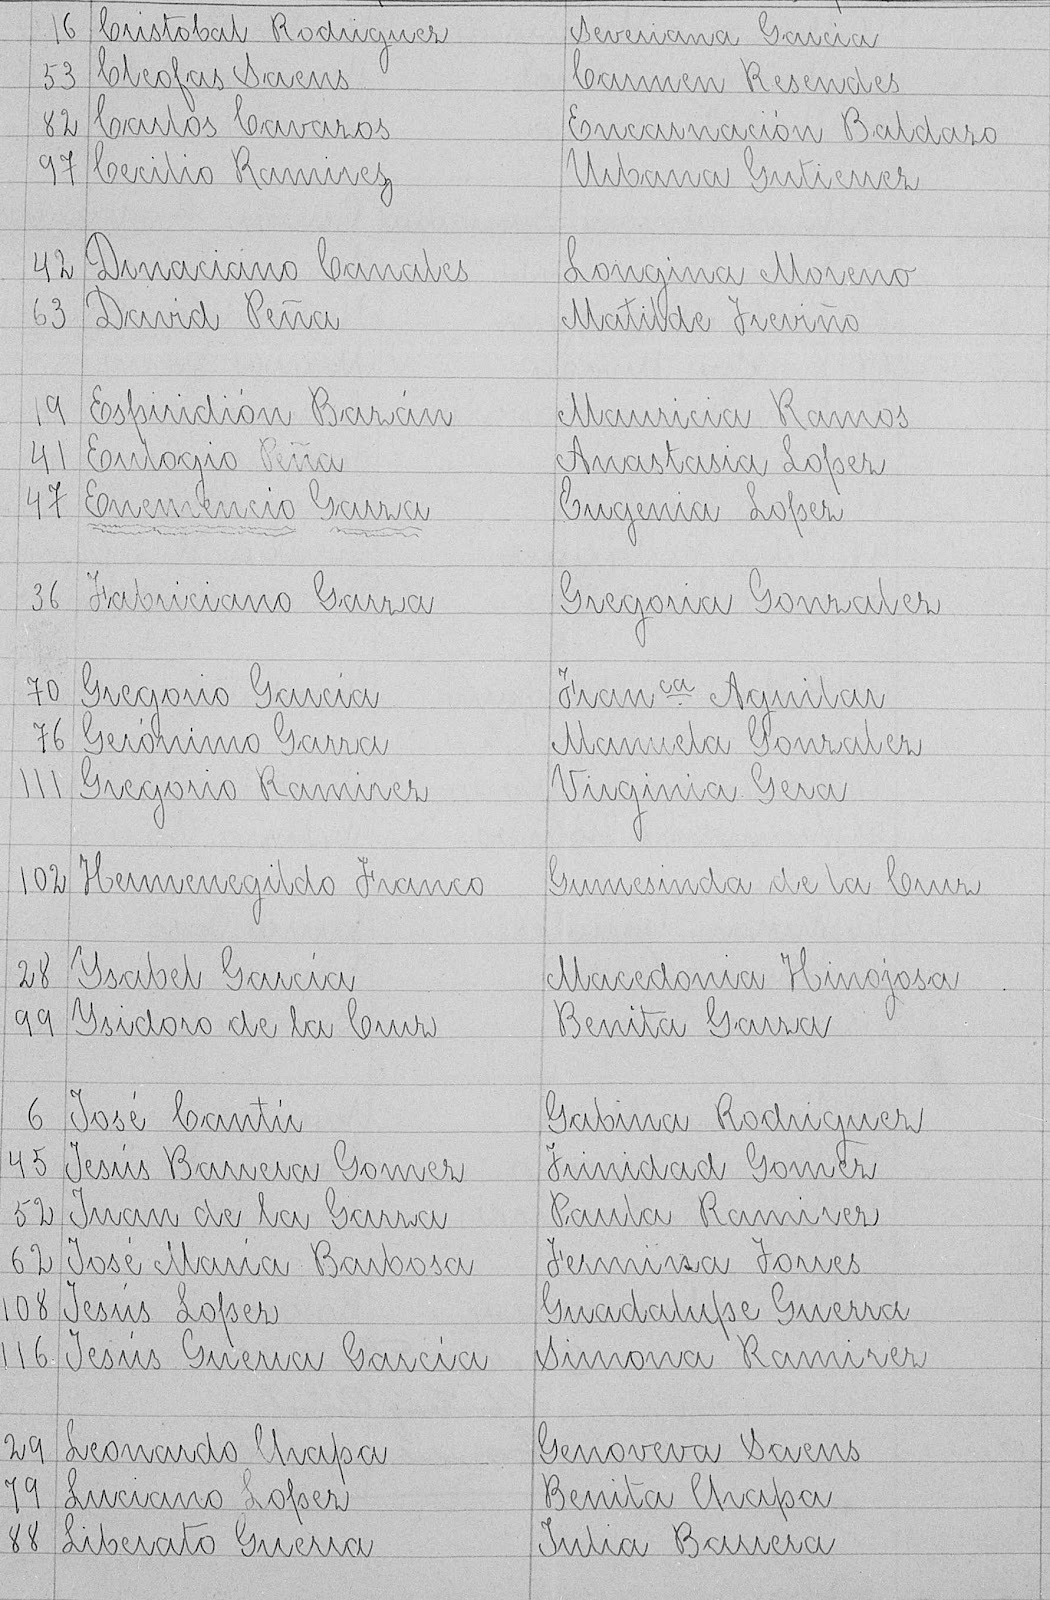 16 Cristobal Rodriguez Severiana Garcia
53 Cleofas Saens Carmen Resendes
82 Carlos Cavazos Encarnación Baldazo
97 Cecilio Ramirez Urbana Gutierrez
42 Donaciano Canales Longina Moreno
63 David Peña Matilde Treviño
19 Espiridión Bazán Mauricia Ramos
41 Eulogio Peña Anastasia Lopez
47 Enemencio Garza Eugenia Lopez
36 Fabriciano Garza Gregoria Gonzalez
70 Gregorio García Franca Aguilar
76 Gerónimo Garza Manuela Gonzalez
111 Gregorio Ramirez Virginia Gera
102 Hermenegildo Franco Gumesinda de la Cruz
28 Ysabel García Macedonia Hinojosa
99 Ysidoro de la Cruz Benita Garza
6 José Cantú Gabina Rodriguez
45 Jesús Barrera Gomez Trinidad Gomez
52 Juan de la Garza Paula Ramirez
62 José María Barbosa Fermina Torres
108 Jesús Lopez Guadalupe Guerra
116 Jesús Guerra García Simona Ramirez
29 Leonardo Chapa Genoveva Saens
79 Luciano Lopez Benita Chapa
88 Liberato Guerra Julia Barrera